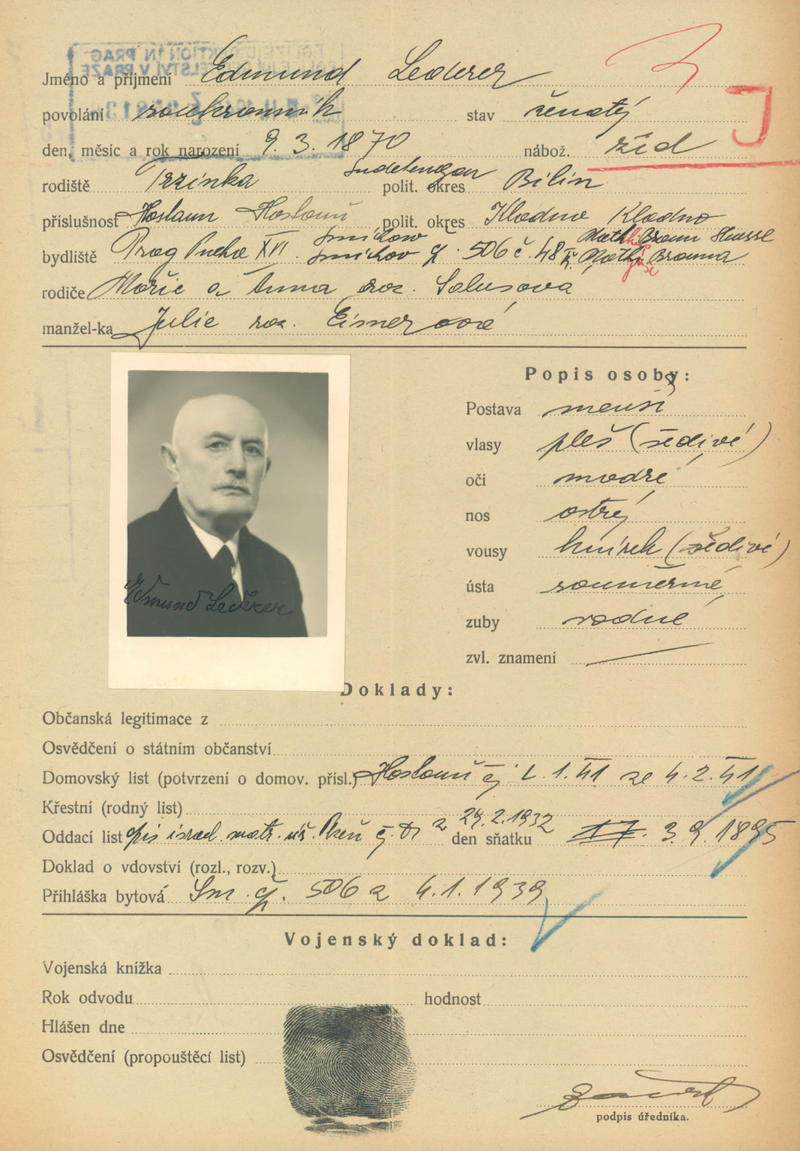 POLIZEIDIREKTION IN PRAG
Jméno a příjmení Edmund Lederer
povolání soukromník stav ženatý
J
den, měsíc a rok narození 9. 3. 1870 nábož. žid
Sudetengau
rodiště Trzinka polit. okres Bilin
příslušnost Hostaun Hostouň polit. okres Kladno Kladno
Smichow
bydliště Prag Praha XVI. Smíchov č. 506 č. 48 Math. Braun Mat. Brauna
rodiče Mořic a Anna roz. Salusová
manžel-ka Julie roz. Eisnerová
Popis osoby:
Postava menší
vlasy pleš (šedivé)
oči modré
nos ostrý
vousy knírek (šedivé)
ústa souměrné
zuby vadné
zvl. znamení
Edmund Lederer
Doklady:
Občanská legitimace z
Osvědčení o státním občanství
Domovský list (potvrzení o domov. přísl.) Hostouň čj. L. 1. 41 ze 4. 2. 41
Křestní (rodný list)
Oddací list opis israel. matr. z 24. 2. 1932 den sňatku 3 9. 1895
Doklad o vdovství (rozl., rozv.)
Přihláška bytová Sm. čp. 506 z 4. 1. 1939
Vojenský doklad:
Vojenská knížka
Rok odvodu hodnost
Hlášen dne
Osvědčení (propouštěcí list)
podpis úředníka.